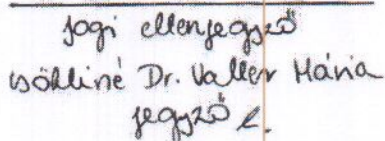 jogi ellenjegyző
Csökliné Dr. Valler Mária
jegyző